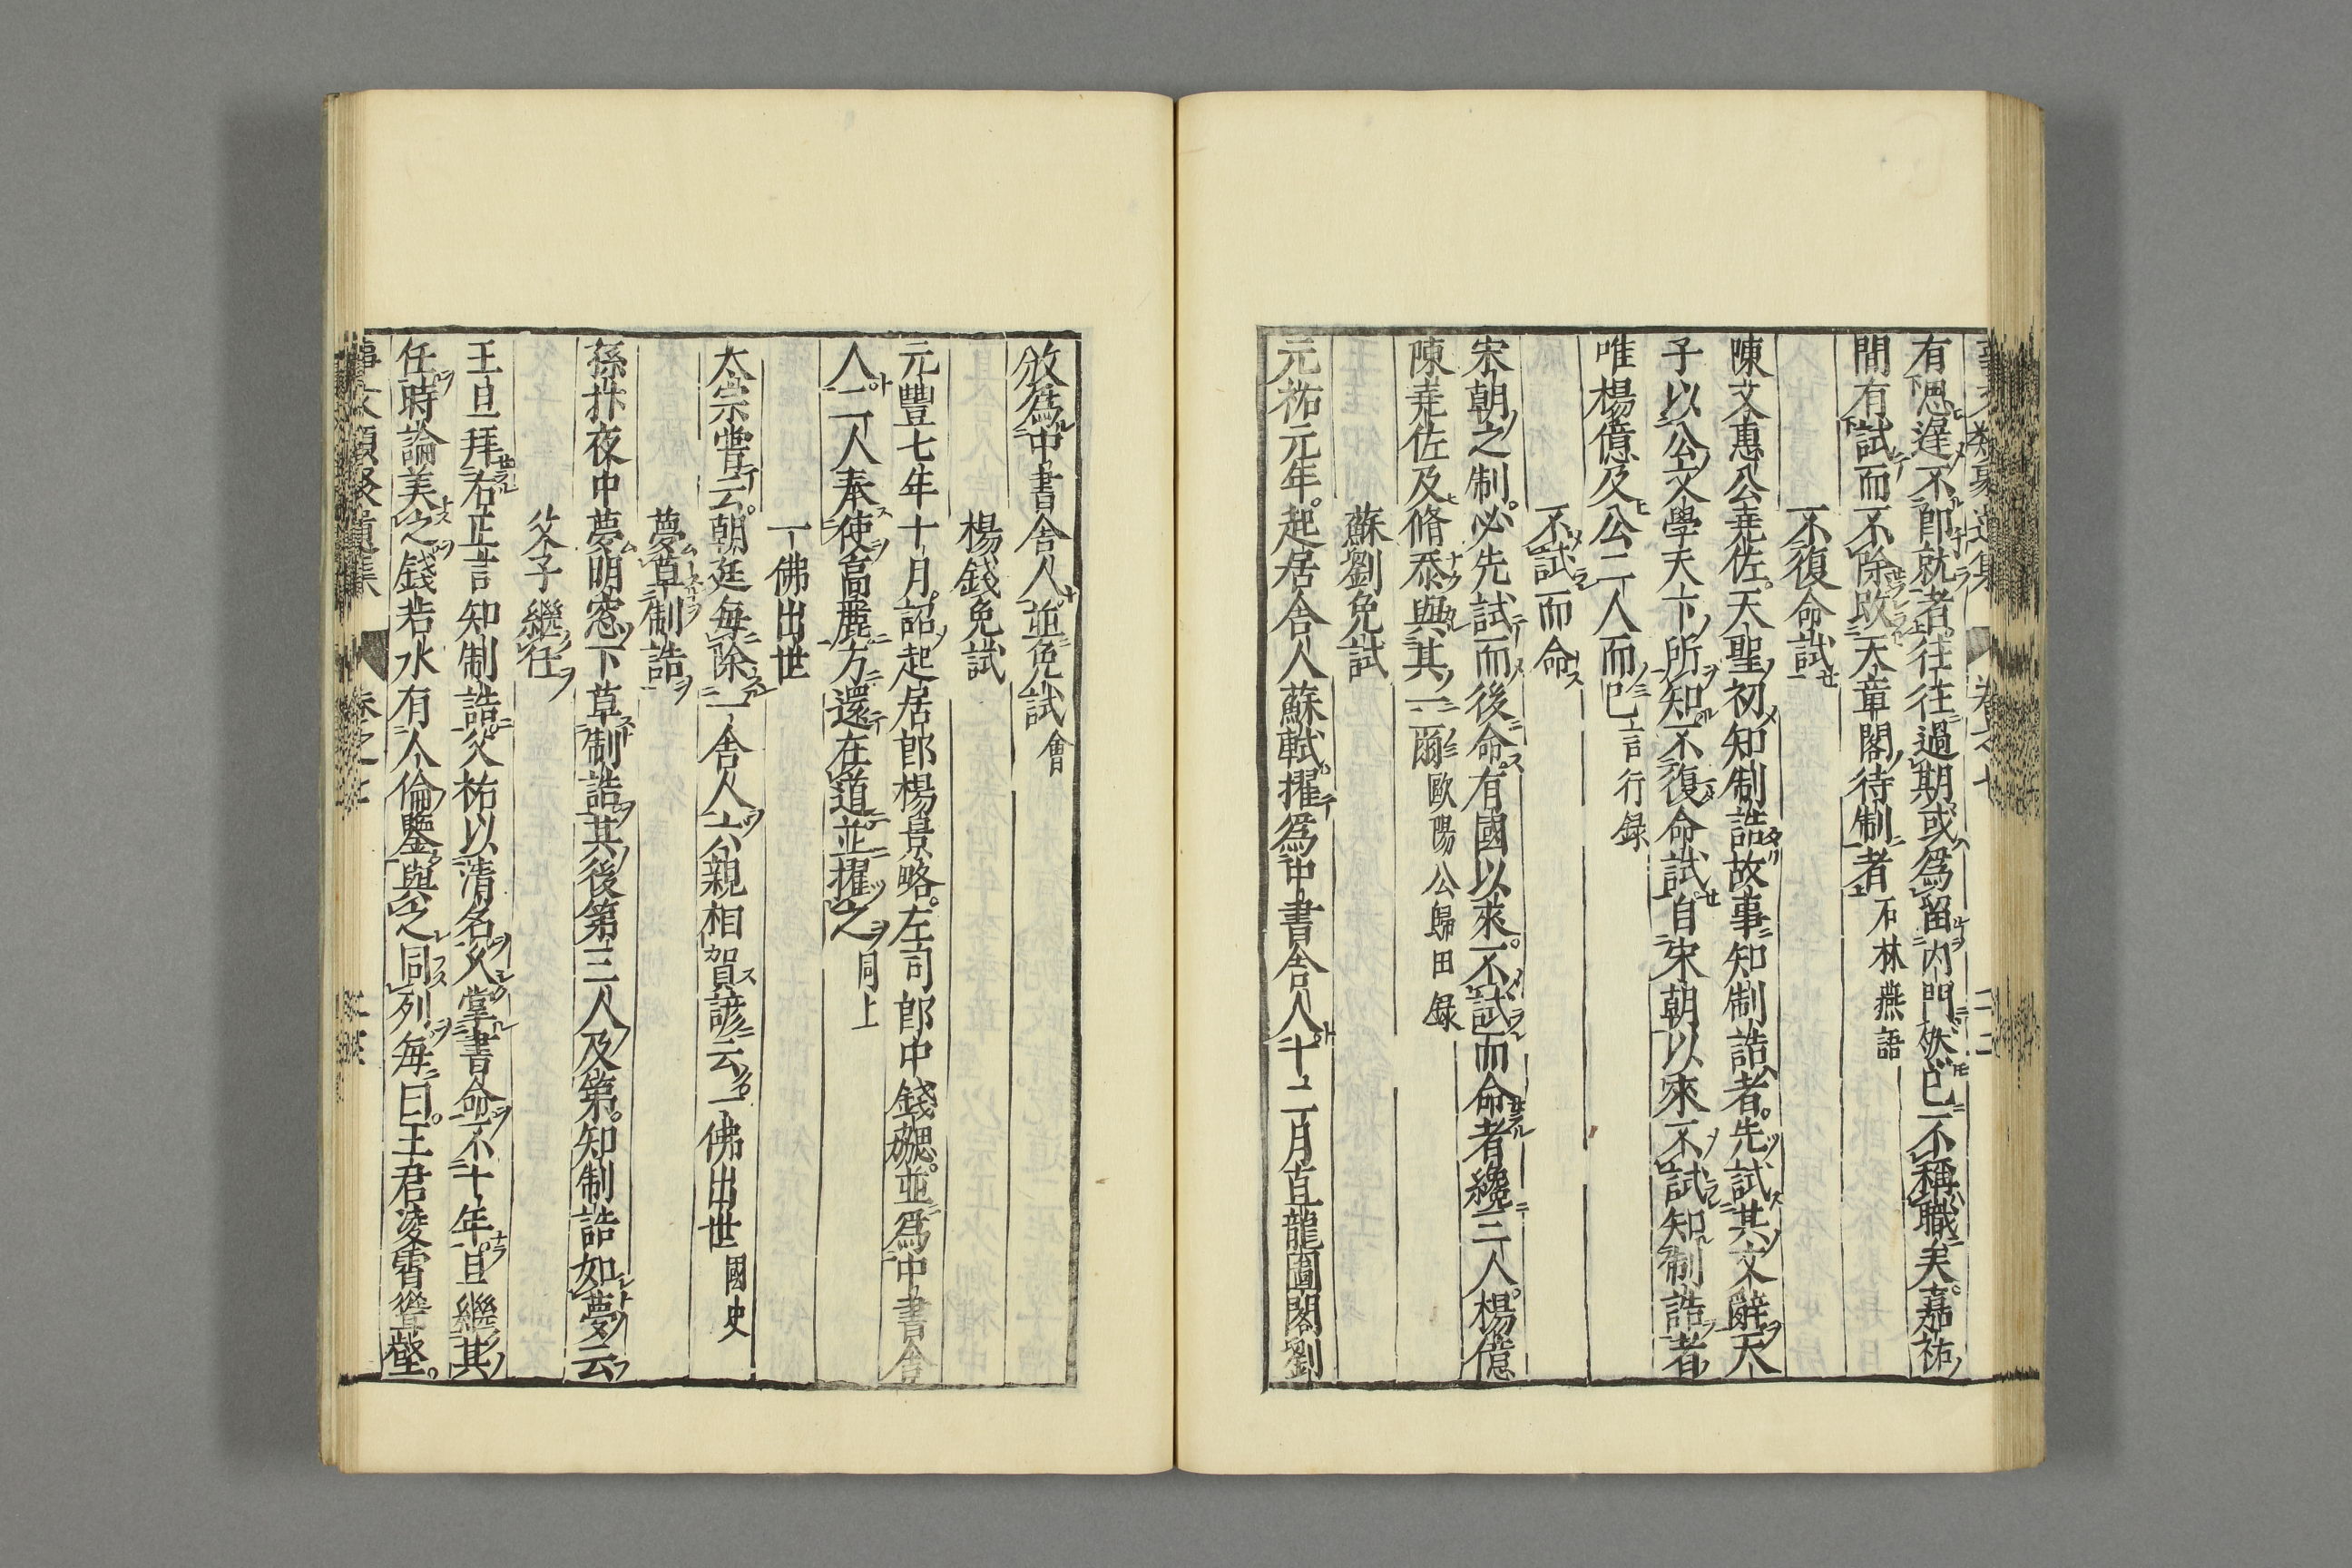 有思遲不即就者往往過期或爲留内門然已不稱職矣嘉祐
間有試而不除改天章閣待制者石林燕語
不復命試
陳文惠公堯佐天聖初知制誥故事知制誥者先試其文辭天
子以公文學天下所知不復命試自宋朝以來不試知制誥者
唯楊億及公二人而已言行録
不試而命
宋朝之制必先試而後命有國以來不試而命者纔三人楊億
陳堯佐及脩忝與其一爾歐陽公歸田録
蘇劉免試
元祐元年起居舎人蘇軾擢爲中書舎人十二月直龍圖閣劉
攽爲中書舎人並免試會
楊錢免試
元豐七年十月詔起居郎楊景略左司郎中錢勰並爲中書舎
人二人奉使高麗方還在道並擢之同上
一佛出世
太宗嘗云朝廷毎除一舎人六親相賀諺云一佛出世國史
夢草制誥
孫抃夜中夢明窓下草制誥其後第三人及第知制誥如夢云
父子繼任
王旦拜右正言知制誥父祐以清名久掌書命不十年旦繼其
任時論美之錢若水有人倫鑒與之同列毎曰王君凌霄聳壑
事文類聚遺集 卷之七